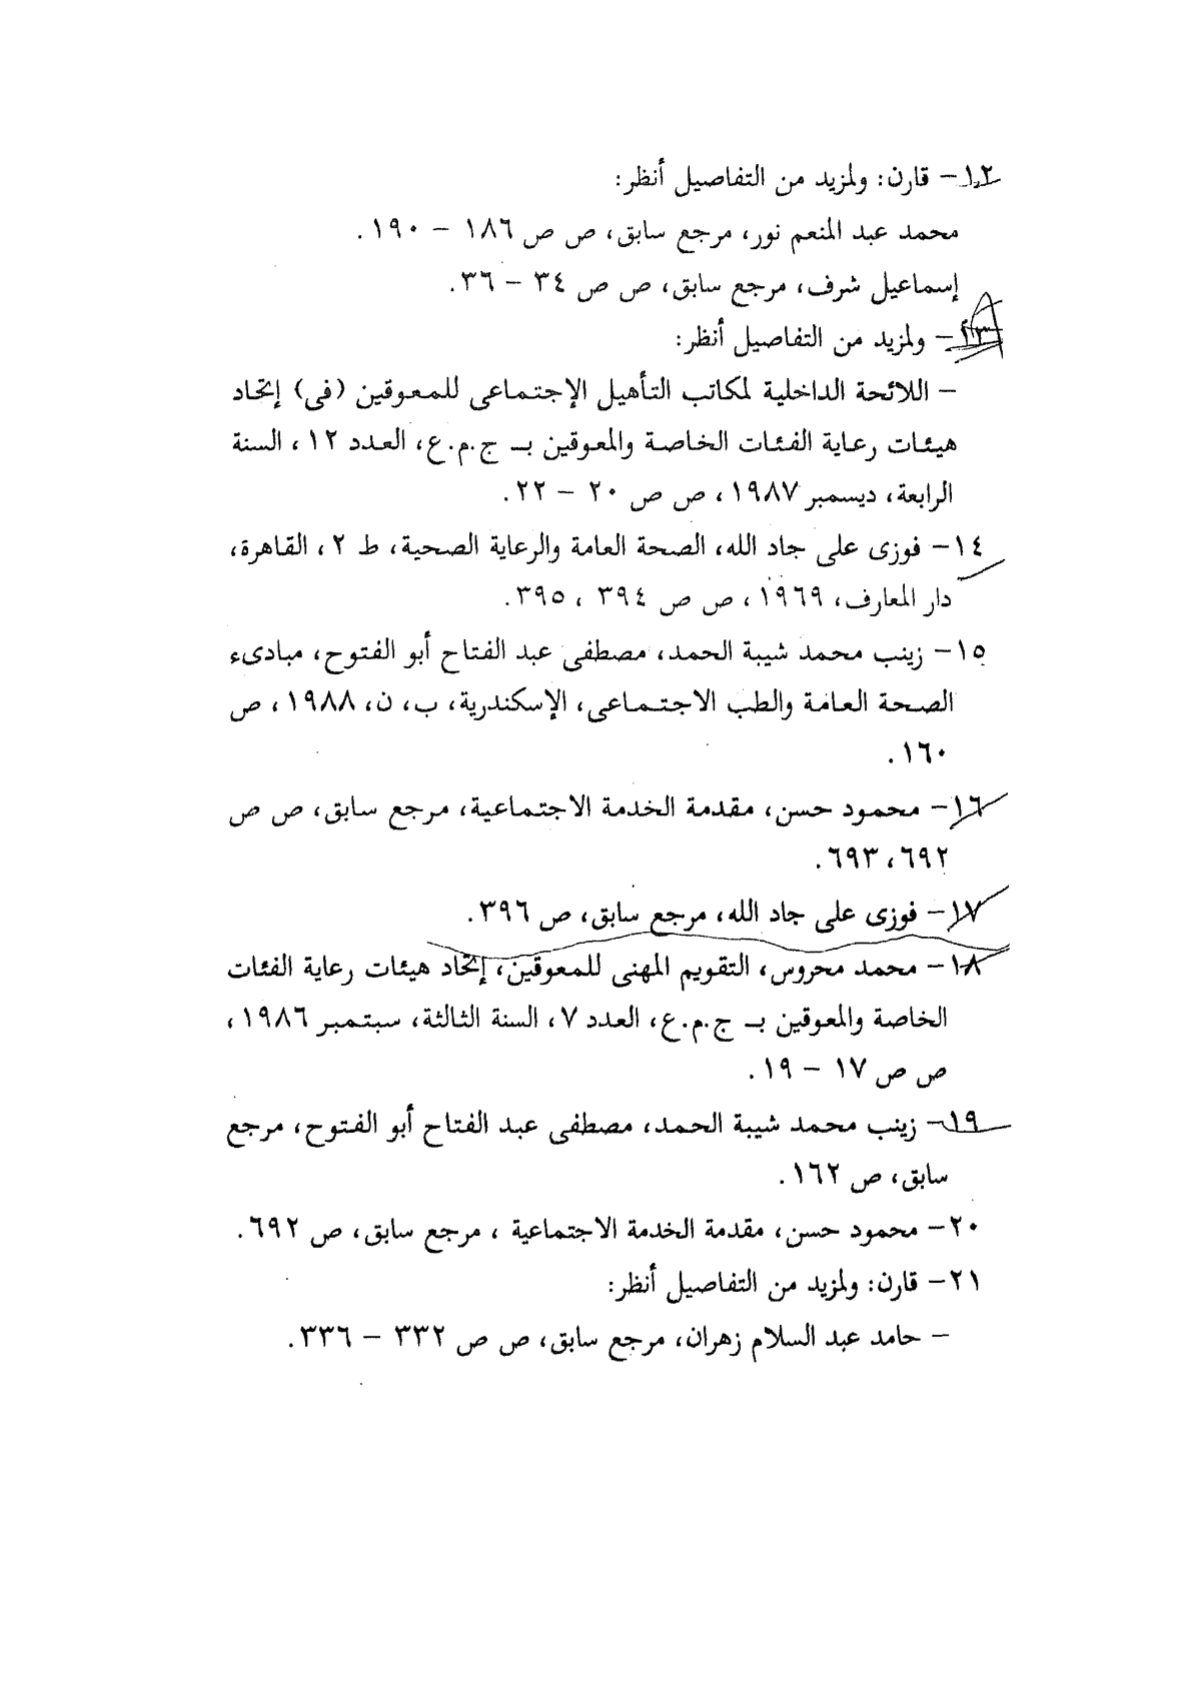 ١٢- قارن: ولمزيد من التفاصيل أنظر:
محمد عبد المنعم نور، مرجع سابق، ص ص ١٨٦ – ١٩٠.
إسماعيل شرف، مرجع سابق، ص ص ٣٤ – ٣٦.
١٣- ولمزيد من التفاصيل أنظر:
– اللائحة الداخلية لمكاتب التأهيل الإجتماعى للمعوقين (فى) إتحاد
هيئات رعاية الفئات الخاصة والمعوقين بـ ج.م.ع، العدد ١٢، السنة
الرابعة، ديسمبر ١٩٨٧، ص ص ٢٠ – ٢٢.
١٤- فوزى على جاد الله، الصحة العامة والرعاية الصحية، ط ٢، القاهرة،
دار المعارف، ١٩٦٩، ص ص ٣٩٤ ، ٣٩٥.
١٥- زينب محمد شيبة الحمد، مصطفى عبد الفتاح أبو الفتوح، مبادىء
الصحة العامة والطب الاجتماعى، الإسكندرية، ب، ن، ١٩٨٨، ص
١٦٠.
١٦- محمود حسن، مقدمة الخدمة الاجتماعية، مرجع سابق، ص ص
٦٩٢، ٦٩٣.
١٧- فوزى على جاد الله، مرجع سابق، ص ٣٩٦.
١٨- محمد محروس، التقويم المهنى للمعوقين، إتحاد هيئات رعاية الفئات
الخاصة والمعوقين بـ ج.م.ع، العدد ٧، السنة الثالثة، سبتمبر ١٩٨٦،
ص ص ١٧ – ١٩.
١٩- زينب محمد شيبة الحمد، مصطفى عبد الفتاح أبو الفتوح، مرجع
سابق، ص ١٦٢.
٢٠- محمود حسن، مقدمة الخدمة الاجتماعية ، مرجع سابق، ص ٦٩٢.
٢١- قارن: ولمزيد من التفاصيل أنظر:
– حامد عبد السلام زهران، مرجع سابق، ص ص ٣٣٢ – ٣٣٦.